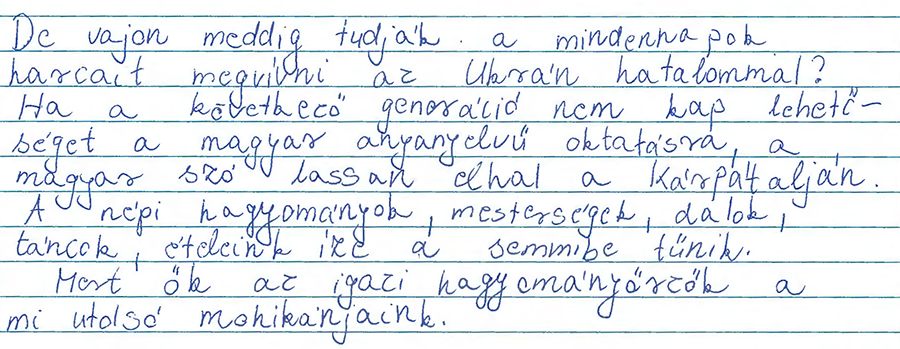 De vajon meddig tudják a mindennapok
harcait megvívni az Ukrán hatalommal?
Ha a következő generáció nem kap lehető-
séget a magyar anyanyelvű oktatásra, a
magyar szó lassan elhal a Kárpátalján.
A népi hagyományok, mesterségek, dalok,
táncok, ételeink íze a semmibe tűnik.
Mert ők az igazi hagyományőrzők a
mi utolsó mohikánjaink.